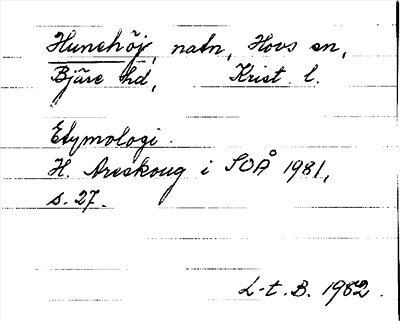 Hunehöj, natn, Hovs sn,
Bjäre hd, Krist. l.
Etymologi.
H. Areskoug i SOÅ 1981,
s. 27.
L-t. B. 1982.